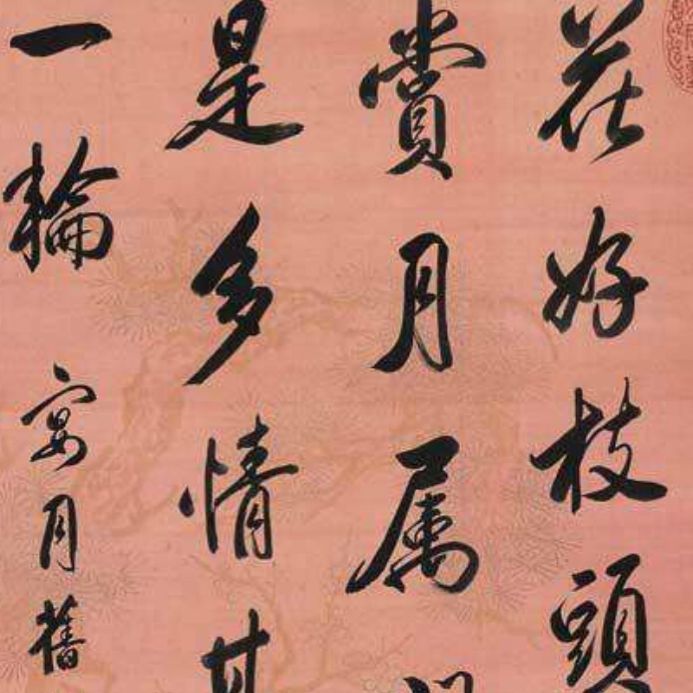 花好枝頭
賞月属
是多情
一輪
宴月舊